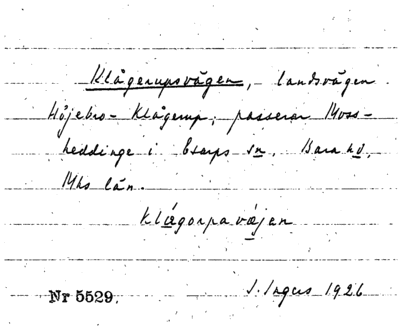 Klågerupsvägen, landsvägen
Höjebro - Klågerup; passerar Moss-
heddinge i Esarps sn. Bara hd.
Mhs län.
Klågorpavájen
Nr 5529. S. Ingers 1926